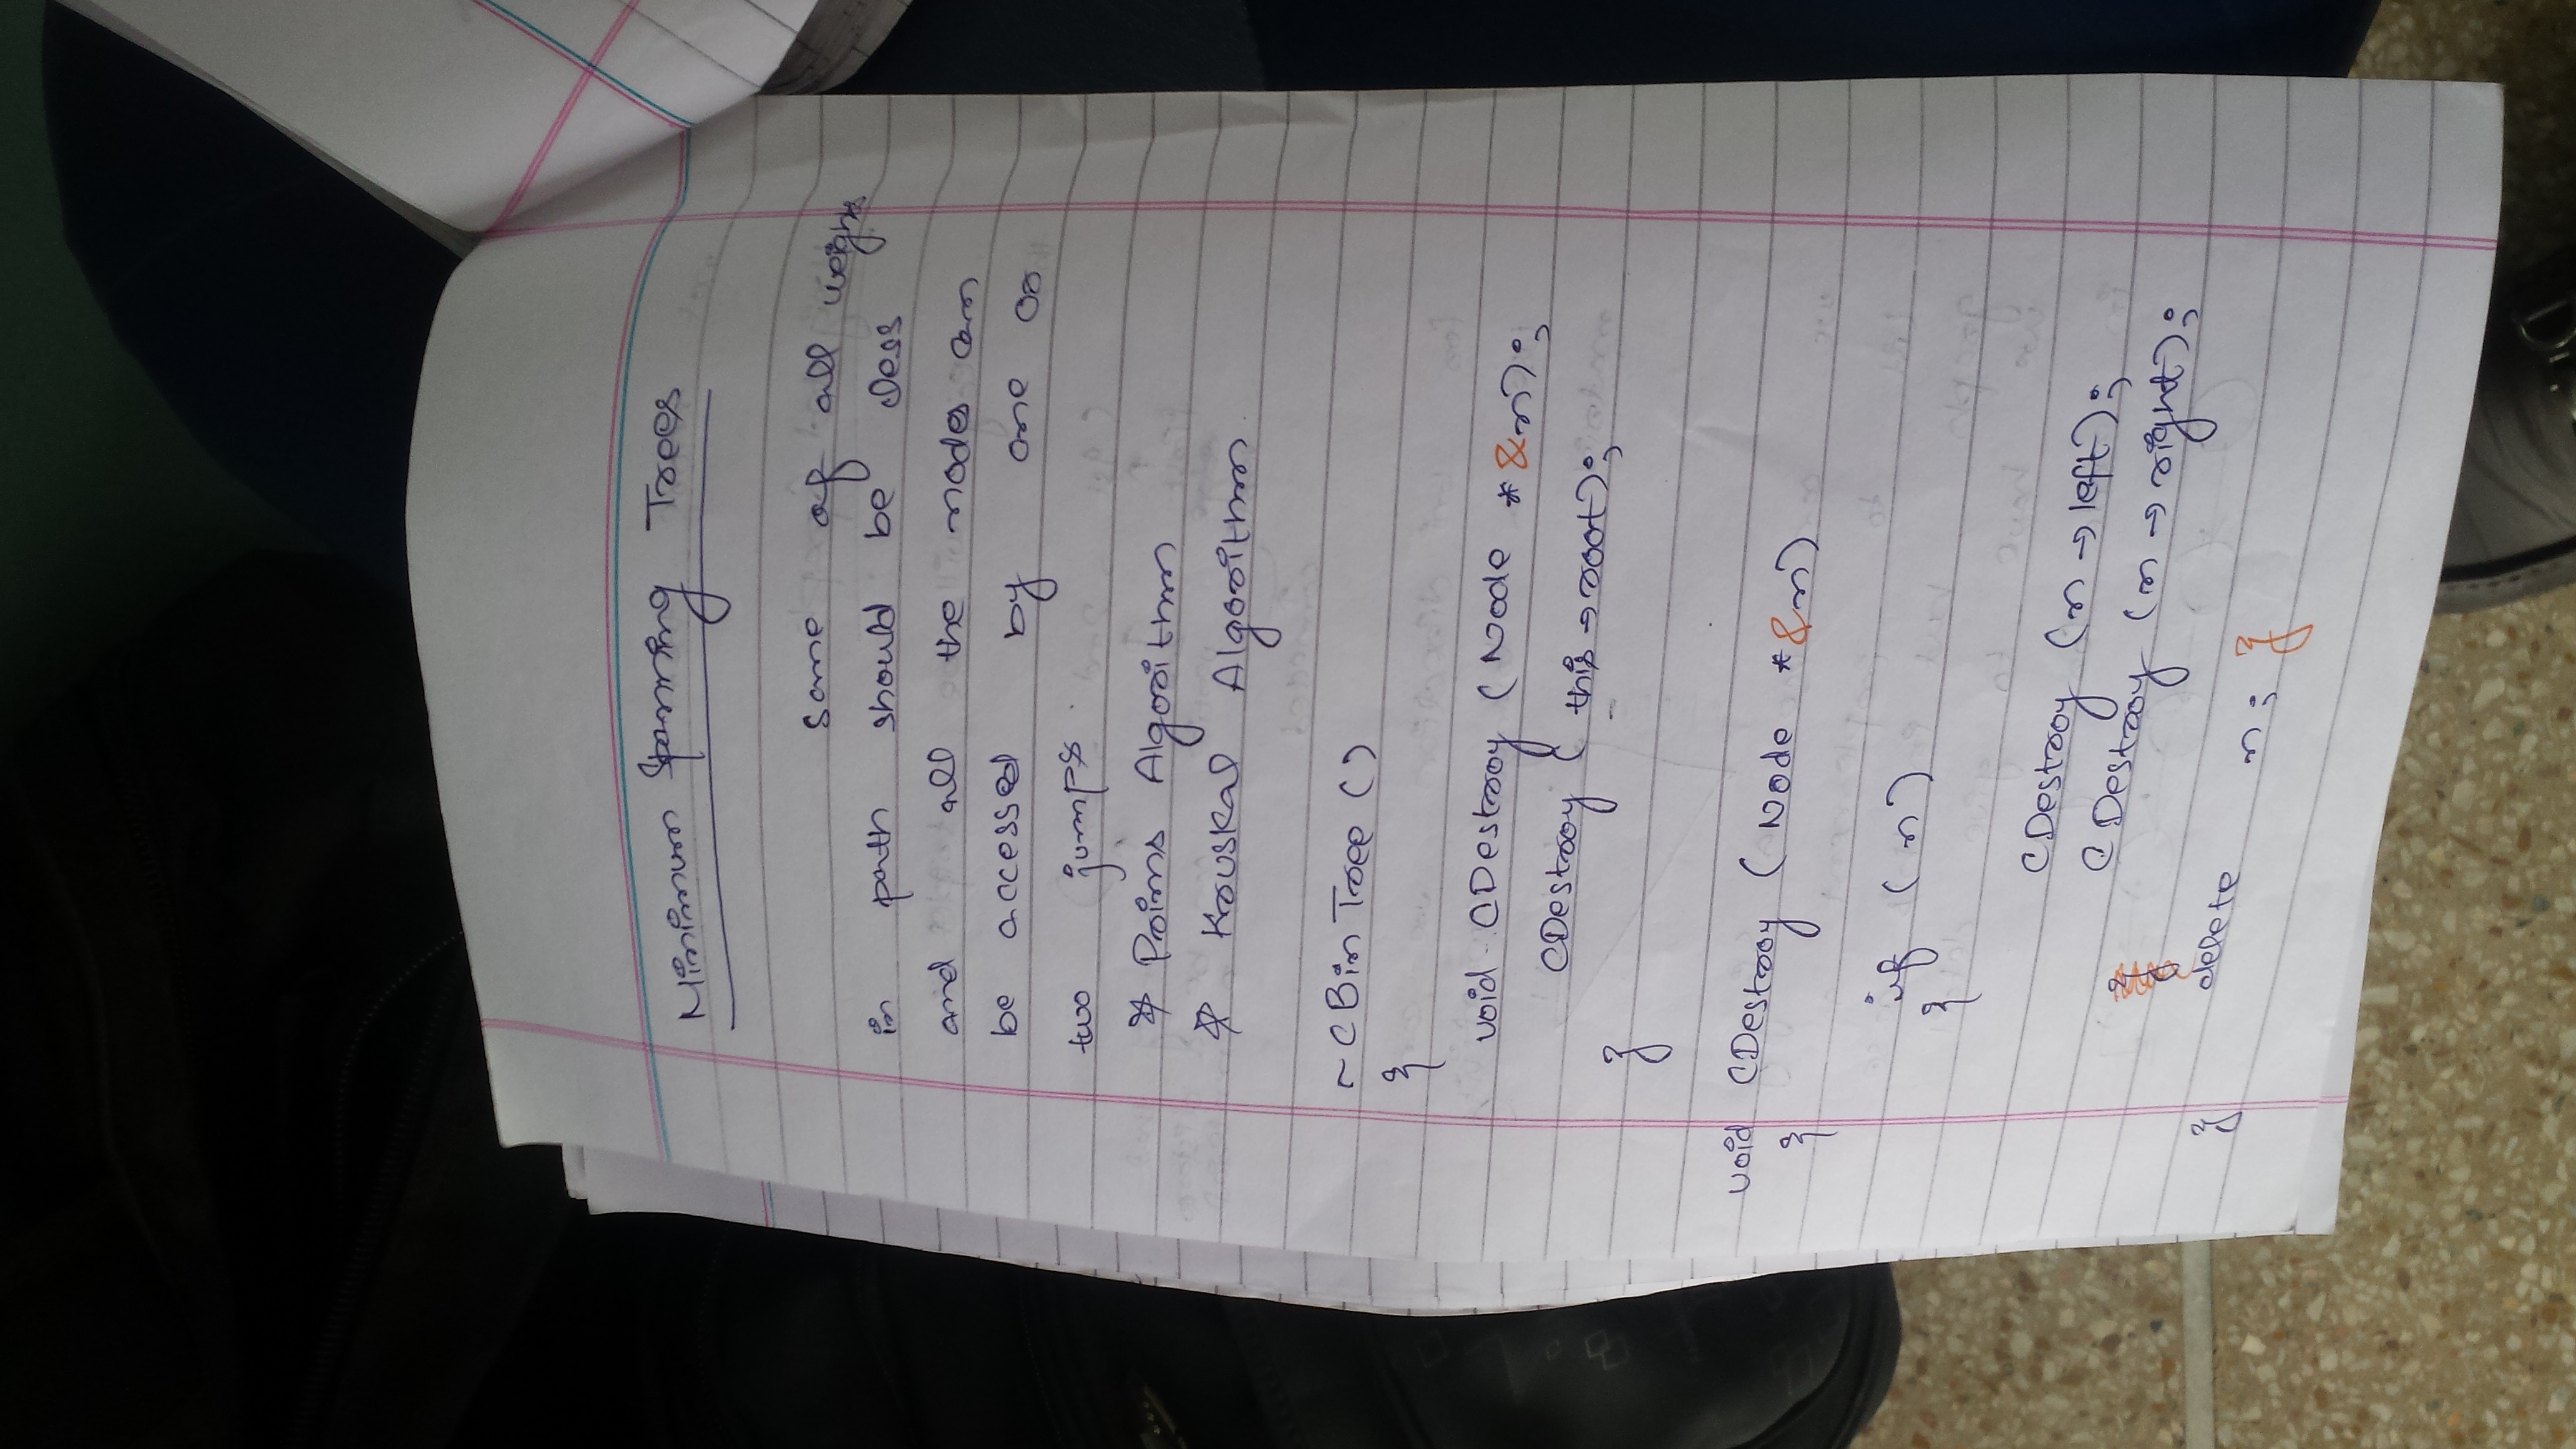 Minimum Spanning Trees
some of all weights
in path should be less
and all the nodes can
be accessed by one or
two jumps.
* Prims Algorithm
* Kruskal Algorithm.
~CBinTree ()
{
void CDestroy (Node *&n);
CDestroy (this→root);
}
void CDestroy (Node *&n)
{
if (n)
{
CDestroy (n→left);
CDestroy (n→right);
delete n; }
}